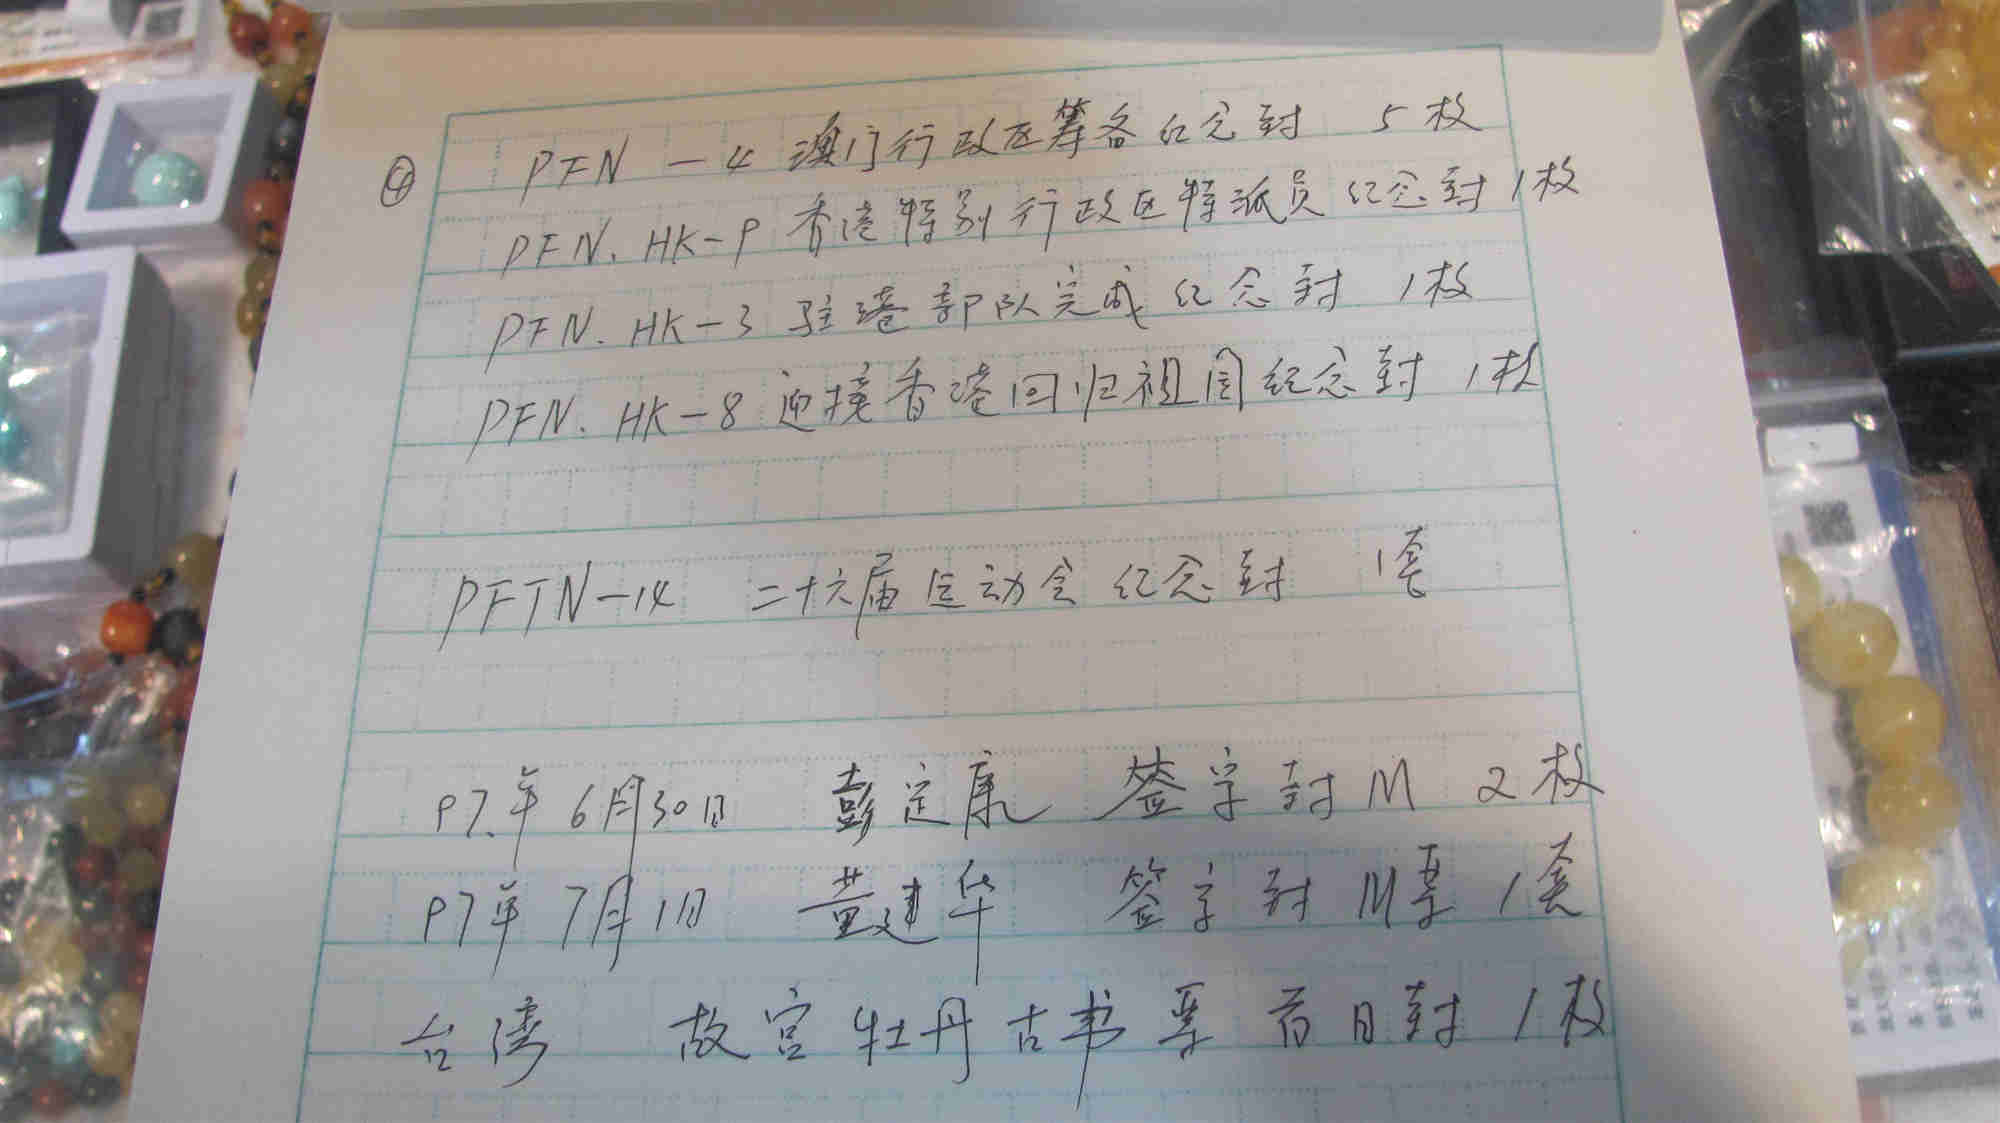 ④ PFN-4 澳门行政区筹备纪念封 5枚
PFN.HK-9 香港特别行政区特派员纪念封 1枚
PFN.HK-3 驻港部队完成纪念封 1枚
PFN.HK-8 迎接香港回归祖国纪念封 1枚
PFTN-14 二十六届运动会纪念封 1套
97年6月30日 彭定康 签字封M 2枚
97年7月1日 董建华 签字封M票 1套
台湾 故宫牡丹古书票 首日封 1枚